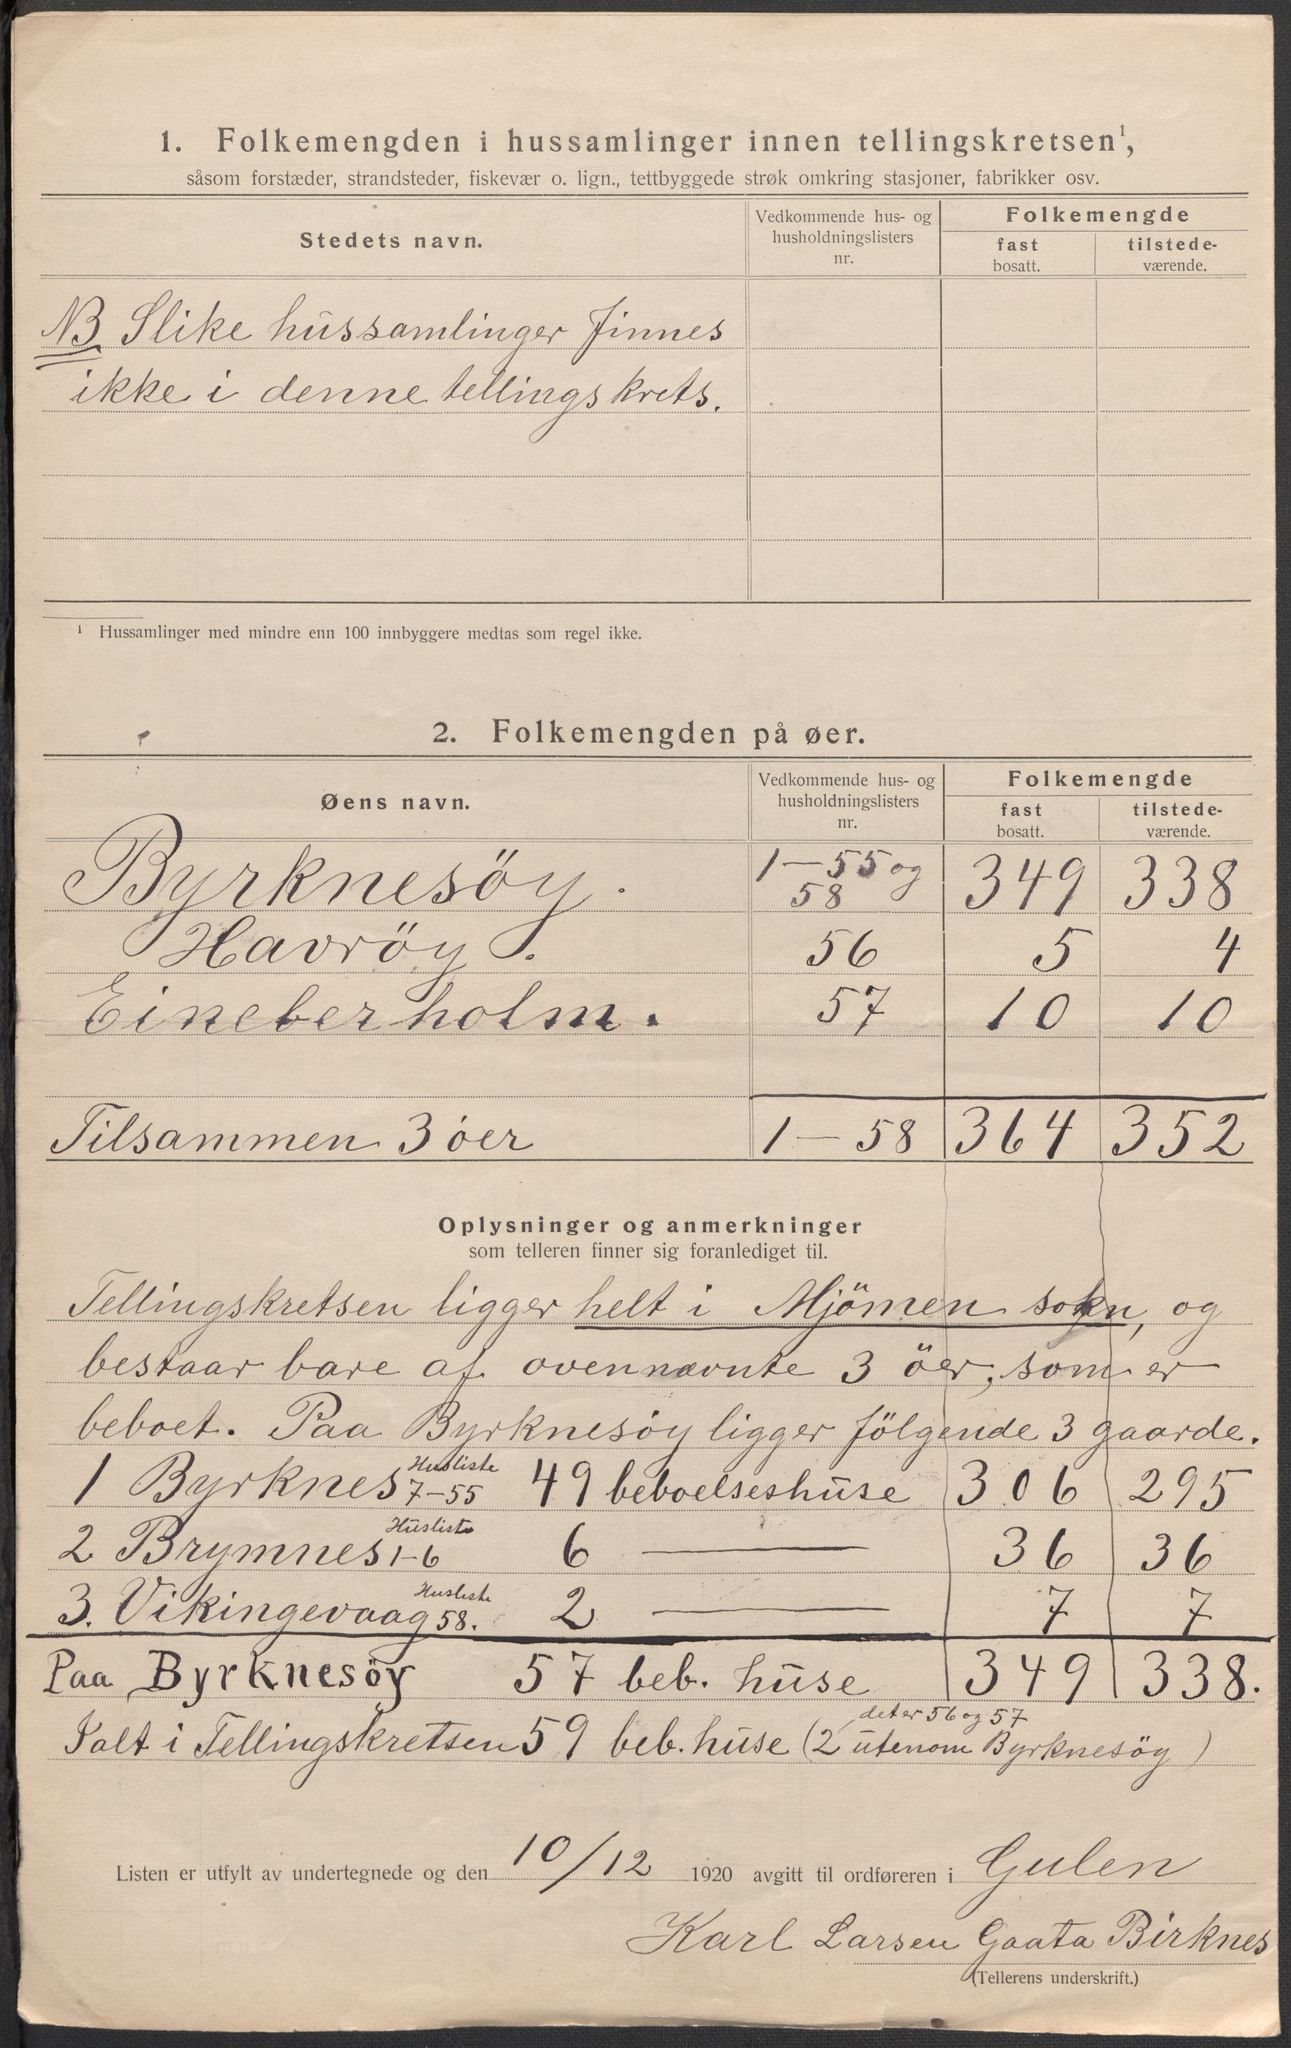 1. Folkemengden i hussamlinger innen tellingskretsen¹,
såsom forstæder, strandsteder, fiskevær o. lign., tettbyggede strøk omkring stasjoner, fabrikker osv.
Stedets navn. Vedkommende hus- og husholdningslisters nr. Folkemengde fast bosatt. tilstede-værende.
NB Slike hussamlinger finnes
ikke i denne tellingskrets.
¹ Hussamlinger med mindre enn 100 innbyggere medtas som regel ikke.
2. Folkemengden på øer.
Øens navn. Vedkommende hus- og husholdningslisters nr. Folkemengde fast bosatt. tilstede-værende.
Byrknesöy. 1-55 og 58 349 338
Havröy. 56 5 4
Eineberholm. 57 10 10
Tilsammen 3 öer 1-58 364 352
Oplysninger og anmerkninger
som telleren finner sig foranlediget til.
Tellingskretsen ligger helt i Mjömen sokn, og
bestaar bare af ovennævnte 3 öer, som er
beboet. Paa Byrknesöy ligger fölgende 3 gaarde.
1 Byrknes Husliste 7-55 49 beboelseshuse 306 295
2 Brymnes Husliste 1-6 6 — 36 36
3. Vikingevaag Husliste 58. 2 — 7 7
Paa Byrknesöy 57 beb. huse 349 338.
det er 56 og 57
Ialt i Tellingskretsen 59 beb. huse (2 utenom Byrknesöy)
Listen er utfylt av undertegnede og den 10/12 1920 avgitt til ordføreren i Gulen
Karl Larsen Gaata Birknes
(Tellerens underskrift.)